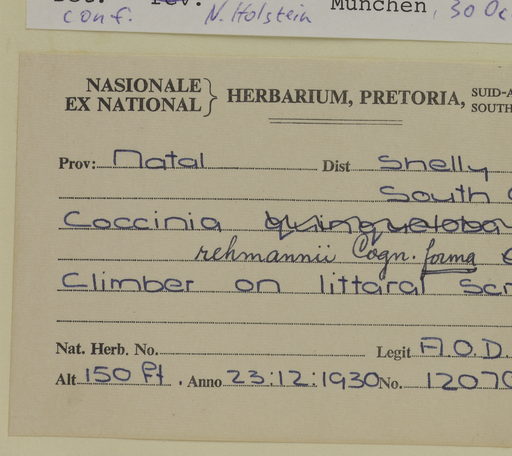 conf. N. Holstein München, 30 Oc
NASIONALE
EX NATIONAL } HERBARIUM, PRETORIA, SUID-A
SOUTH
Prov: Natal Dist Shelly
South
Coccinia quinqueloba
rehmannii Cogn. forma
Climber on littaral scr
Nat. Herb. No. Legit A.O.D.
Alt 150 ft. Anno 23:12:1930 No. 12070